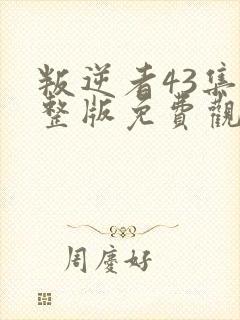 叛逆者43集
整版免費觀
周慶好